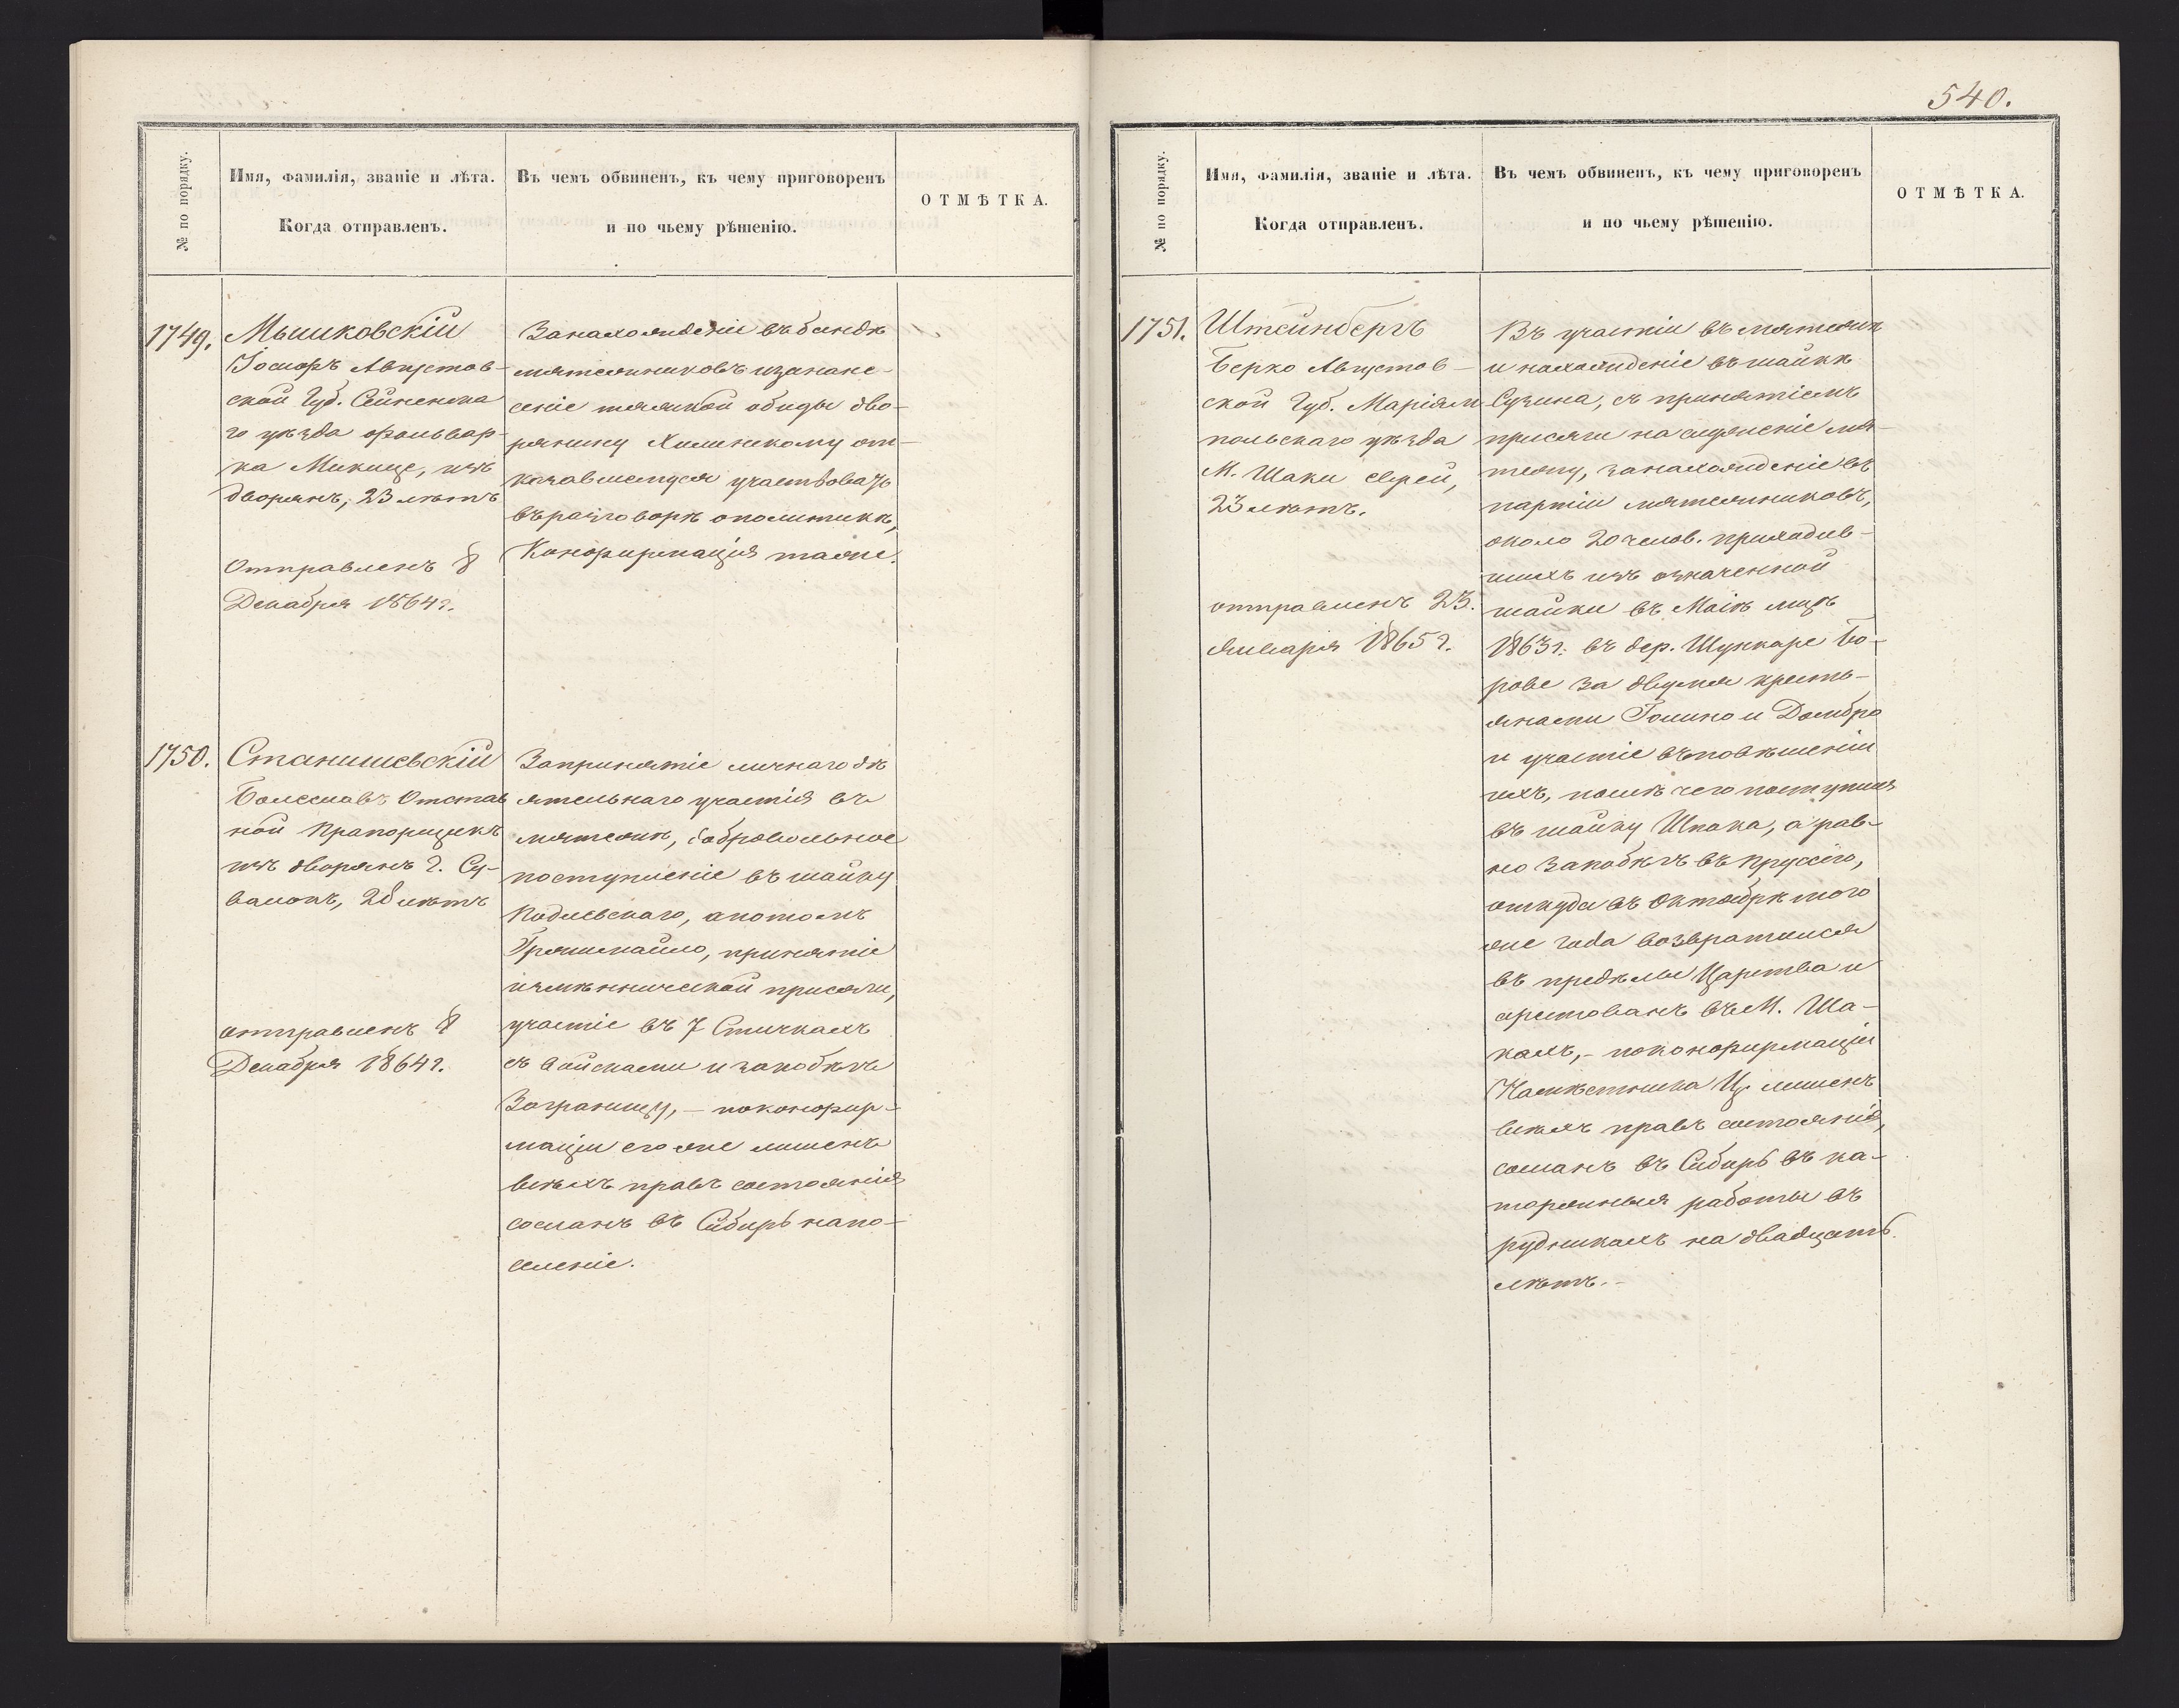 540.
№ по порядку.
Имя, фамилія, званіе и лѣта.
Когда отправленъ.
Въ чемъ обвиненъ, къ чему приговоренъ
и по чьему рѣшенію.
ОТМѢТКА.
1749.
Мышковскій
Іосифъ Августов-
ской Губ. Сейненска
го уѣзда фольвар-
ка Микице, изъ
дворянъ, 23 лѣтъ
Отправленъ 8
Декабря 1864 г.
За нахожденіи въ бандѣ
мятежниковъ и за нане-
сеніе тяжкой обиды дво-
рянину Хилинскому от-
казавшемуся участвовать
въ разговорѣ о политикѣ,
Конфирмація таже.
1750.
Станишевскій
Болеславъ Отстав
ной Прапорщикъ
изъ дворянъ г. Су-
валокъ, 28 лѣтъ
отправленъ 8
Декабря 1864 г.
За принятіе личнаго дѣ
ятельнаго участія въ
мятежѣ, добровольное
поступленіе въ шайку
а потомъ
принятіе
измѣннической присяги,
участіе въ 7 Стычкахъ
съ войсками и за побѣгъ
Заграницу, – по конфир-
маціи его же лишенъ
всѣхъ правъ состоянія
сосланъ въ Сибирь на по-
селеніе.
№ по порядку.
Имя, фамилія, званіе и лѣта.
Когда отправленъ.
Въ чемъ обвиненъ, къ чему приговоренъ
и по чьему рѣшенію.
ОТМѢТКА.
1751.
Штейнбергъ
Берко Августов-
ской Губ. Маріям
польскаго уѣзда
М. Шаки еврей,
23 лѣтъ.
отправленъ 23.
Января 1865 г.
Въ участіи въ мятежѣ
и нахожденіе въ шайкѣ
Сузина, съ принятіемъ
присяги на служеніе мя-
тежу, за нахожденіе въ
партіи мятежниковъ,
около 20 челов. приходив-
шихъ изъ означенной
шайки въ Маѣ мцѣ
1863 г. въ дер. Бо-
рове за двумя кресть-
янами и Домбро
и участіе въ повѣшеніи
ихъ, послѣ чего поступилъ
въ шайку Шпака, а рав-
но за побѣгъ въ Пруссію,
откуда въ Октябрѣ того
же года возвратился
въ предѣлы Царства и
арестованъ въ М. Ша-
кахъ, – по конфирмаціи
Намѣстника Ц. лишенъ
всѣхъ правъ состоянія,
сосланъ въ Сибирь въ ка-
торжныя работы въ
рудникахъ на двадцать
лѣтъ. –